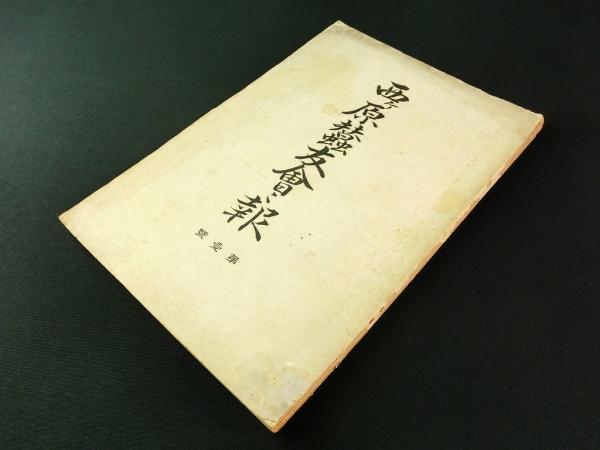 西ヶ原蠶友會報
第壹號